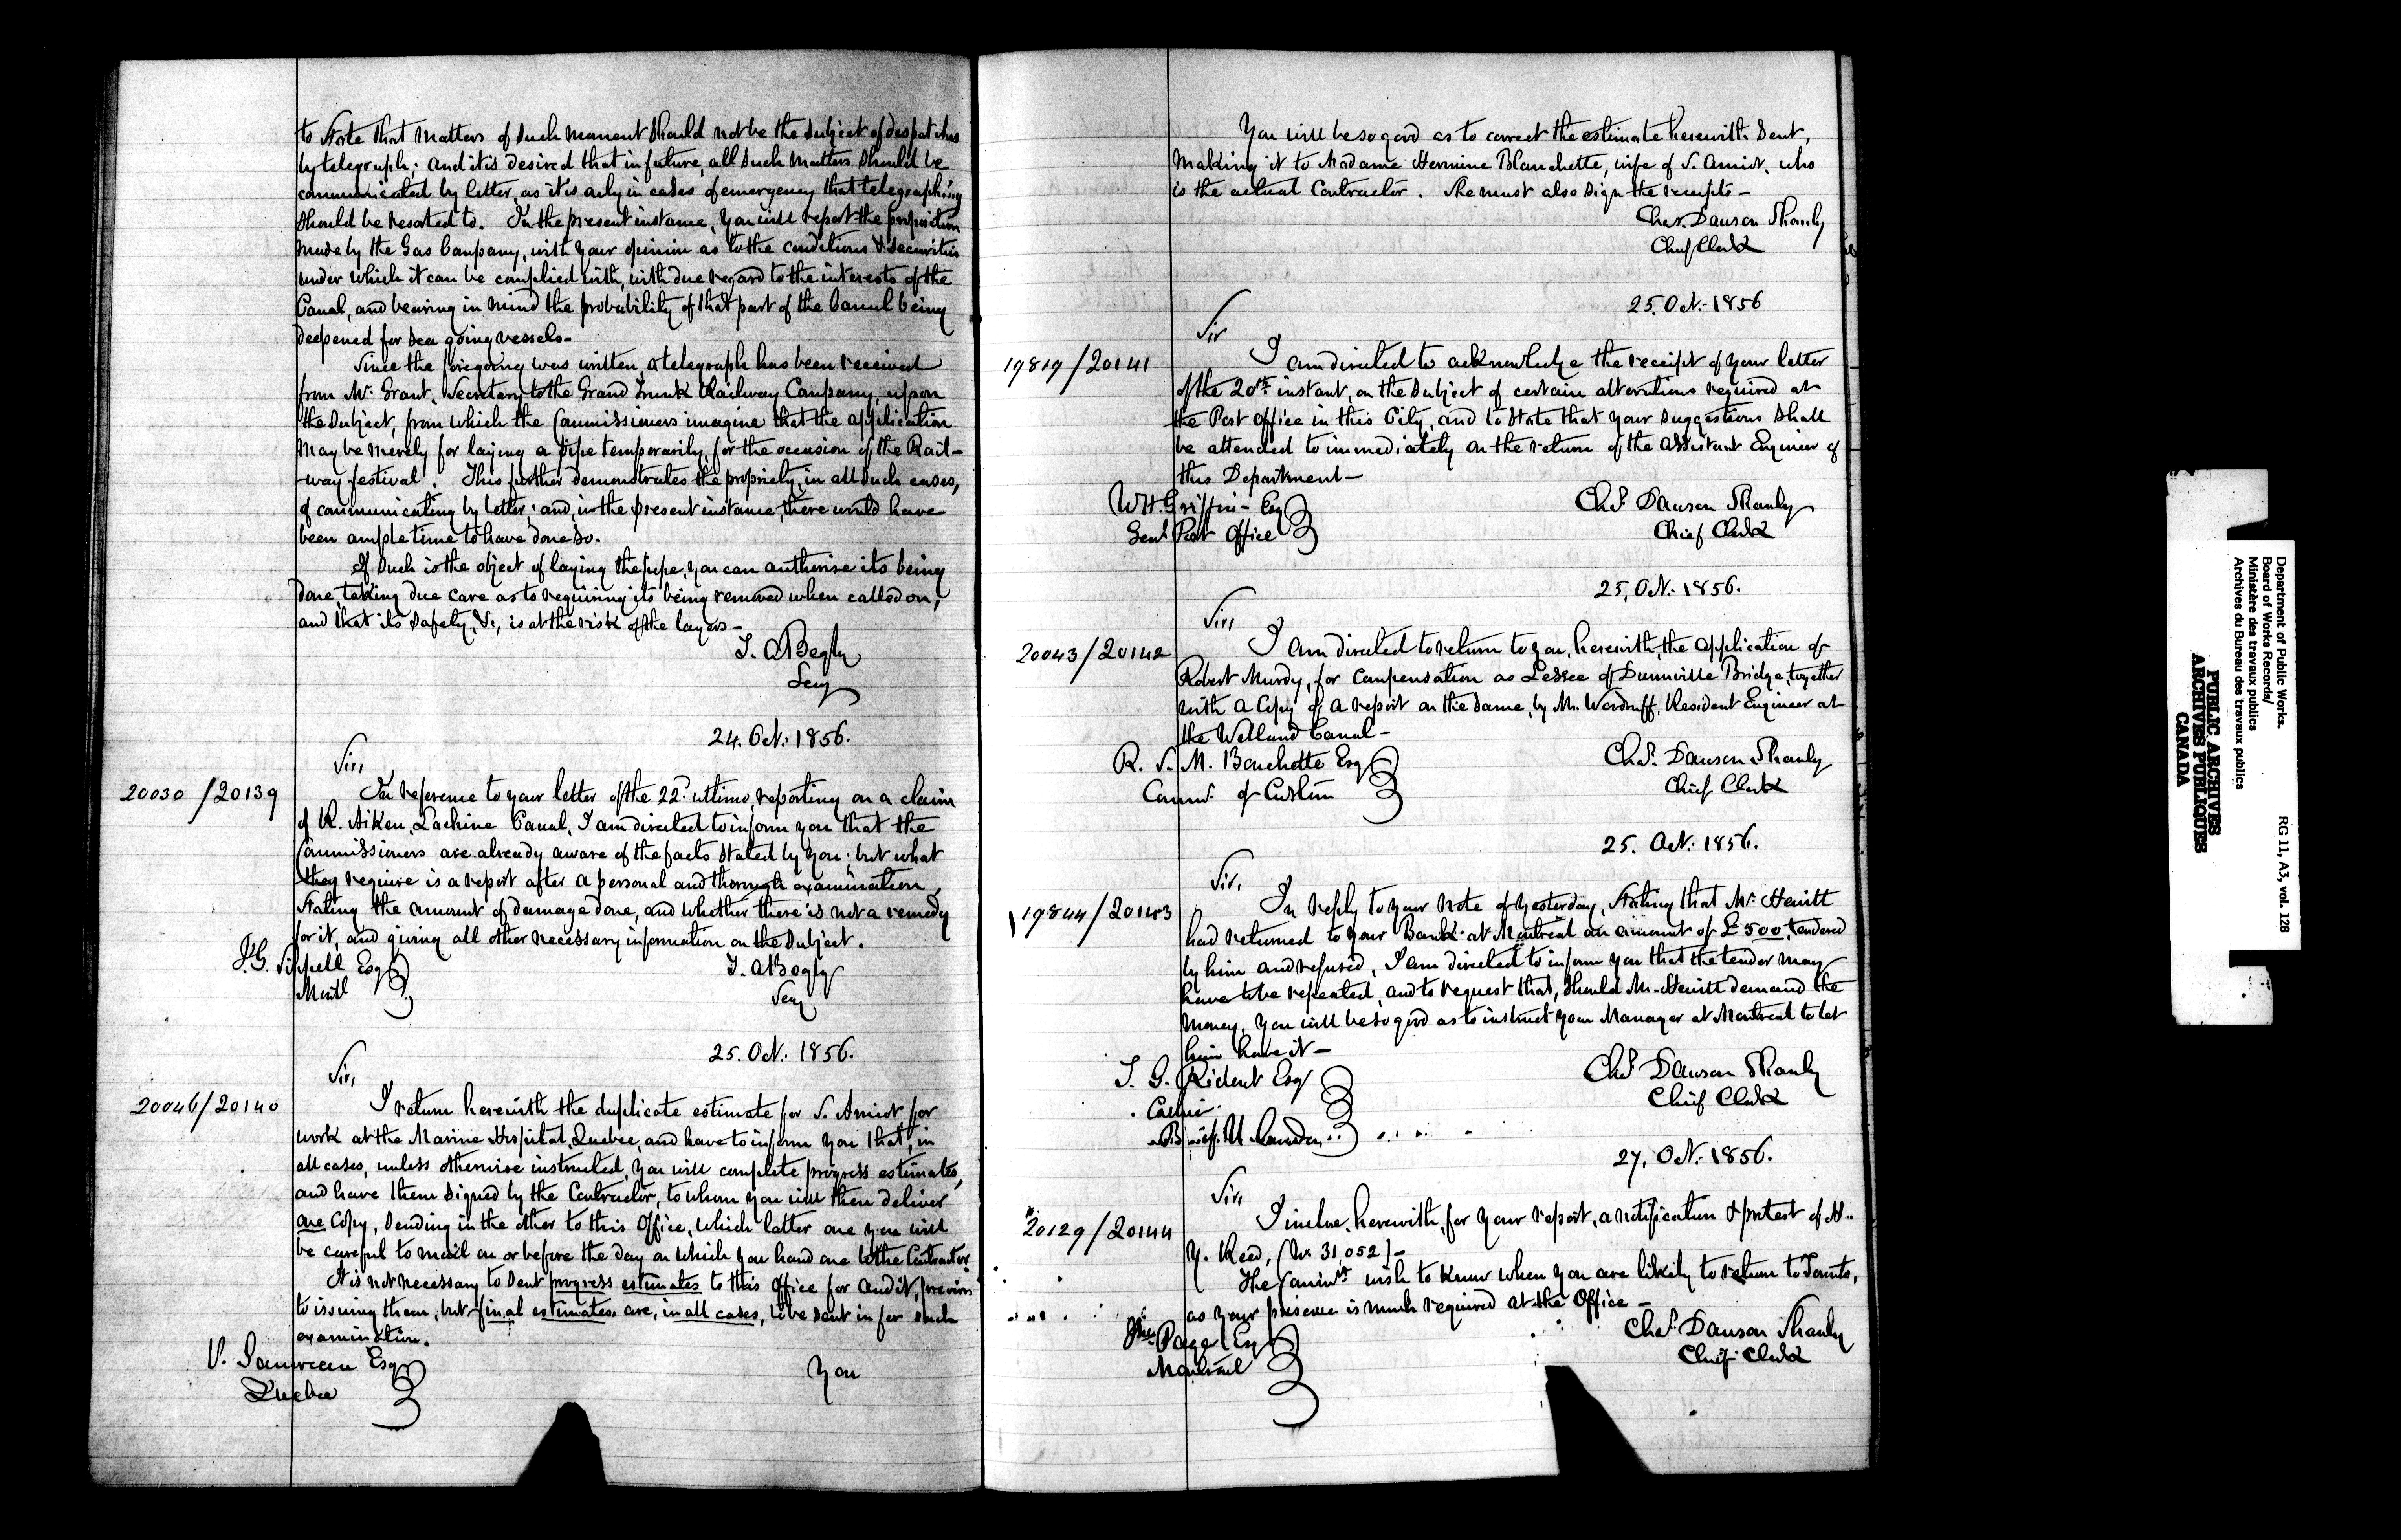 to state that matters of such moment should not be the subject of despatches
by telegraph; and it is desired that in future, all such matters should be
communicated by letter, as it is only in cases of emergency that telegraphing
should be resorted to. In the present instance, you will report the proposition
made by the Gas Company, with your opinion as to the conditions & securities
under which it can be complied with, with due regard to the interests of the
Canal, and bearing in mind the probability of that part of the Canal being
deepened for sea going vessels-
Since the foregoing was written, a telegraph has been received
from Mr. Grant, Secretary to the Grand Trunk Railway Company, upon
the subject, from which the Commissioners imagine that the application
may be merely for laying a pipe temporarily, for the occasion of the Rail-
-way festival. This further demonstrates the propriety, in all such cases,
of communicating by letter; and, in the present instance, there would have
been ample time to have done so.
If such is the object of laying the pipe, you can authorise its being
done, taking due care as to requiring its being removed when called on,
and that its safety, &c, is at the risk of the layers-
T. A. Begly
Secy
24. Oct: 1856.
Sir,
20030/20139
In reference to your letter of the 22d. ultimo, reporting on a claim
of R. Aiken, Lachine Canal, I am directed to inform you that the
Commissioners are already aware of the facts stated by you; but what
they require is a report after a personal and thorough examination,
stating the amount of damage done, and whether there is not a remedy
for it, and giving all other necessary information on the subject.
J.G. Sippell Esq
Montl
T. A Begly
Secy
25. Oct: 1856.
Sir,
20046/20140
I return herewith the duplicate estimate for S. Amiot for
work at the Marine Hospital, Quebec, and have to inform you that, in
all cases, unless otherwise instructed, you will complete progress estimates,
and have them signed by the Contractor, to whom you will then deliver
one Copy, sending in the other to this Office, which latter one you will
be careful to mail on or before the day on which you hand one to the Contractor.
It is not necessary to sent progress estimates to this Office for audit, previous
to issuing them, but final estimates are, in all cases, to be sent in for such
examination.
P. Gauvreau Esq
Quebec
You
You will be so good as to correct the estimate herewith sent,
making it to Madame Hermine Blanchette, wife of S. Amiot, who
is the actual Contractor. She must also sign the receipts-
Chas. Dawson Shanly
Chief Clerk
25. Oct: 1856
Sir
19819/20141
I am directed to acknowledge the receipt of your letter
of the 20th instant, on the subject of certain alterations required at
the Post Office in this City, and to state that your suggestions shall
be attended to immediately on the return of the Assistant Engineer of
this Department-
W H Griffin- Esq
Genl Post Office
Chas. Dawson Shanly
Chief Clerk
25, Oct: 1856.
Sir,
20043/20142
I am directed to return to you, herewith, the application of
Robert Murdy, for compensation as Lessee of Dunnville Bridge, together
with a Copy of a report on the same, by Mr. Woodruff, Resident Engineer at
the Welland Canal-
R. S. M. Bouchette Esq
Commr. of Customs
Chas. Dawson Shanly
Chief Clerk
25. Oct: 1856.
Sir,
19844/20143
In reply to your note of yesterday, stating that Mr. Hewitt
had returned to your Bank at Montreal an amount of £500, tendered
by him and refused, I am directed to inform you that the tender may
have to be repeated, and to request that, should Mr. Hewitt demand the
money, you will be so good as to instruct your Manager at Montreal to let
him have it-
T. G. Ridout Esq
Cashier.
Bank of U Canada
Chas. Dawson Shanly
Chief Clerk
27, Oct: 1856.
Sir,
20129/20144
I inclose, herewith, for your report, a notification & protest of H..
Y. Reed, (No. 31,052)-
The Commrs. wish to know when you are likely to return to Toronto,
as your presence is much required at the Office-
Jno. Page Esq
Montreal
Chas. Dawson Shanly
Chief Clerk
Department of Public Works.
Board of Works Records/
Ministère des travaux publics
Archives du Bureau des travaux publics
RG 11, A3, vol. 128
PUBLIC ARCHIVES
ARCHIVES PUBLIQUES
CANADA